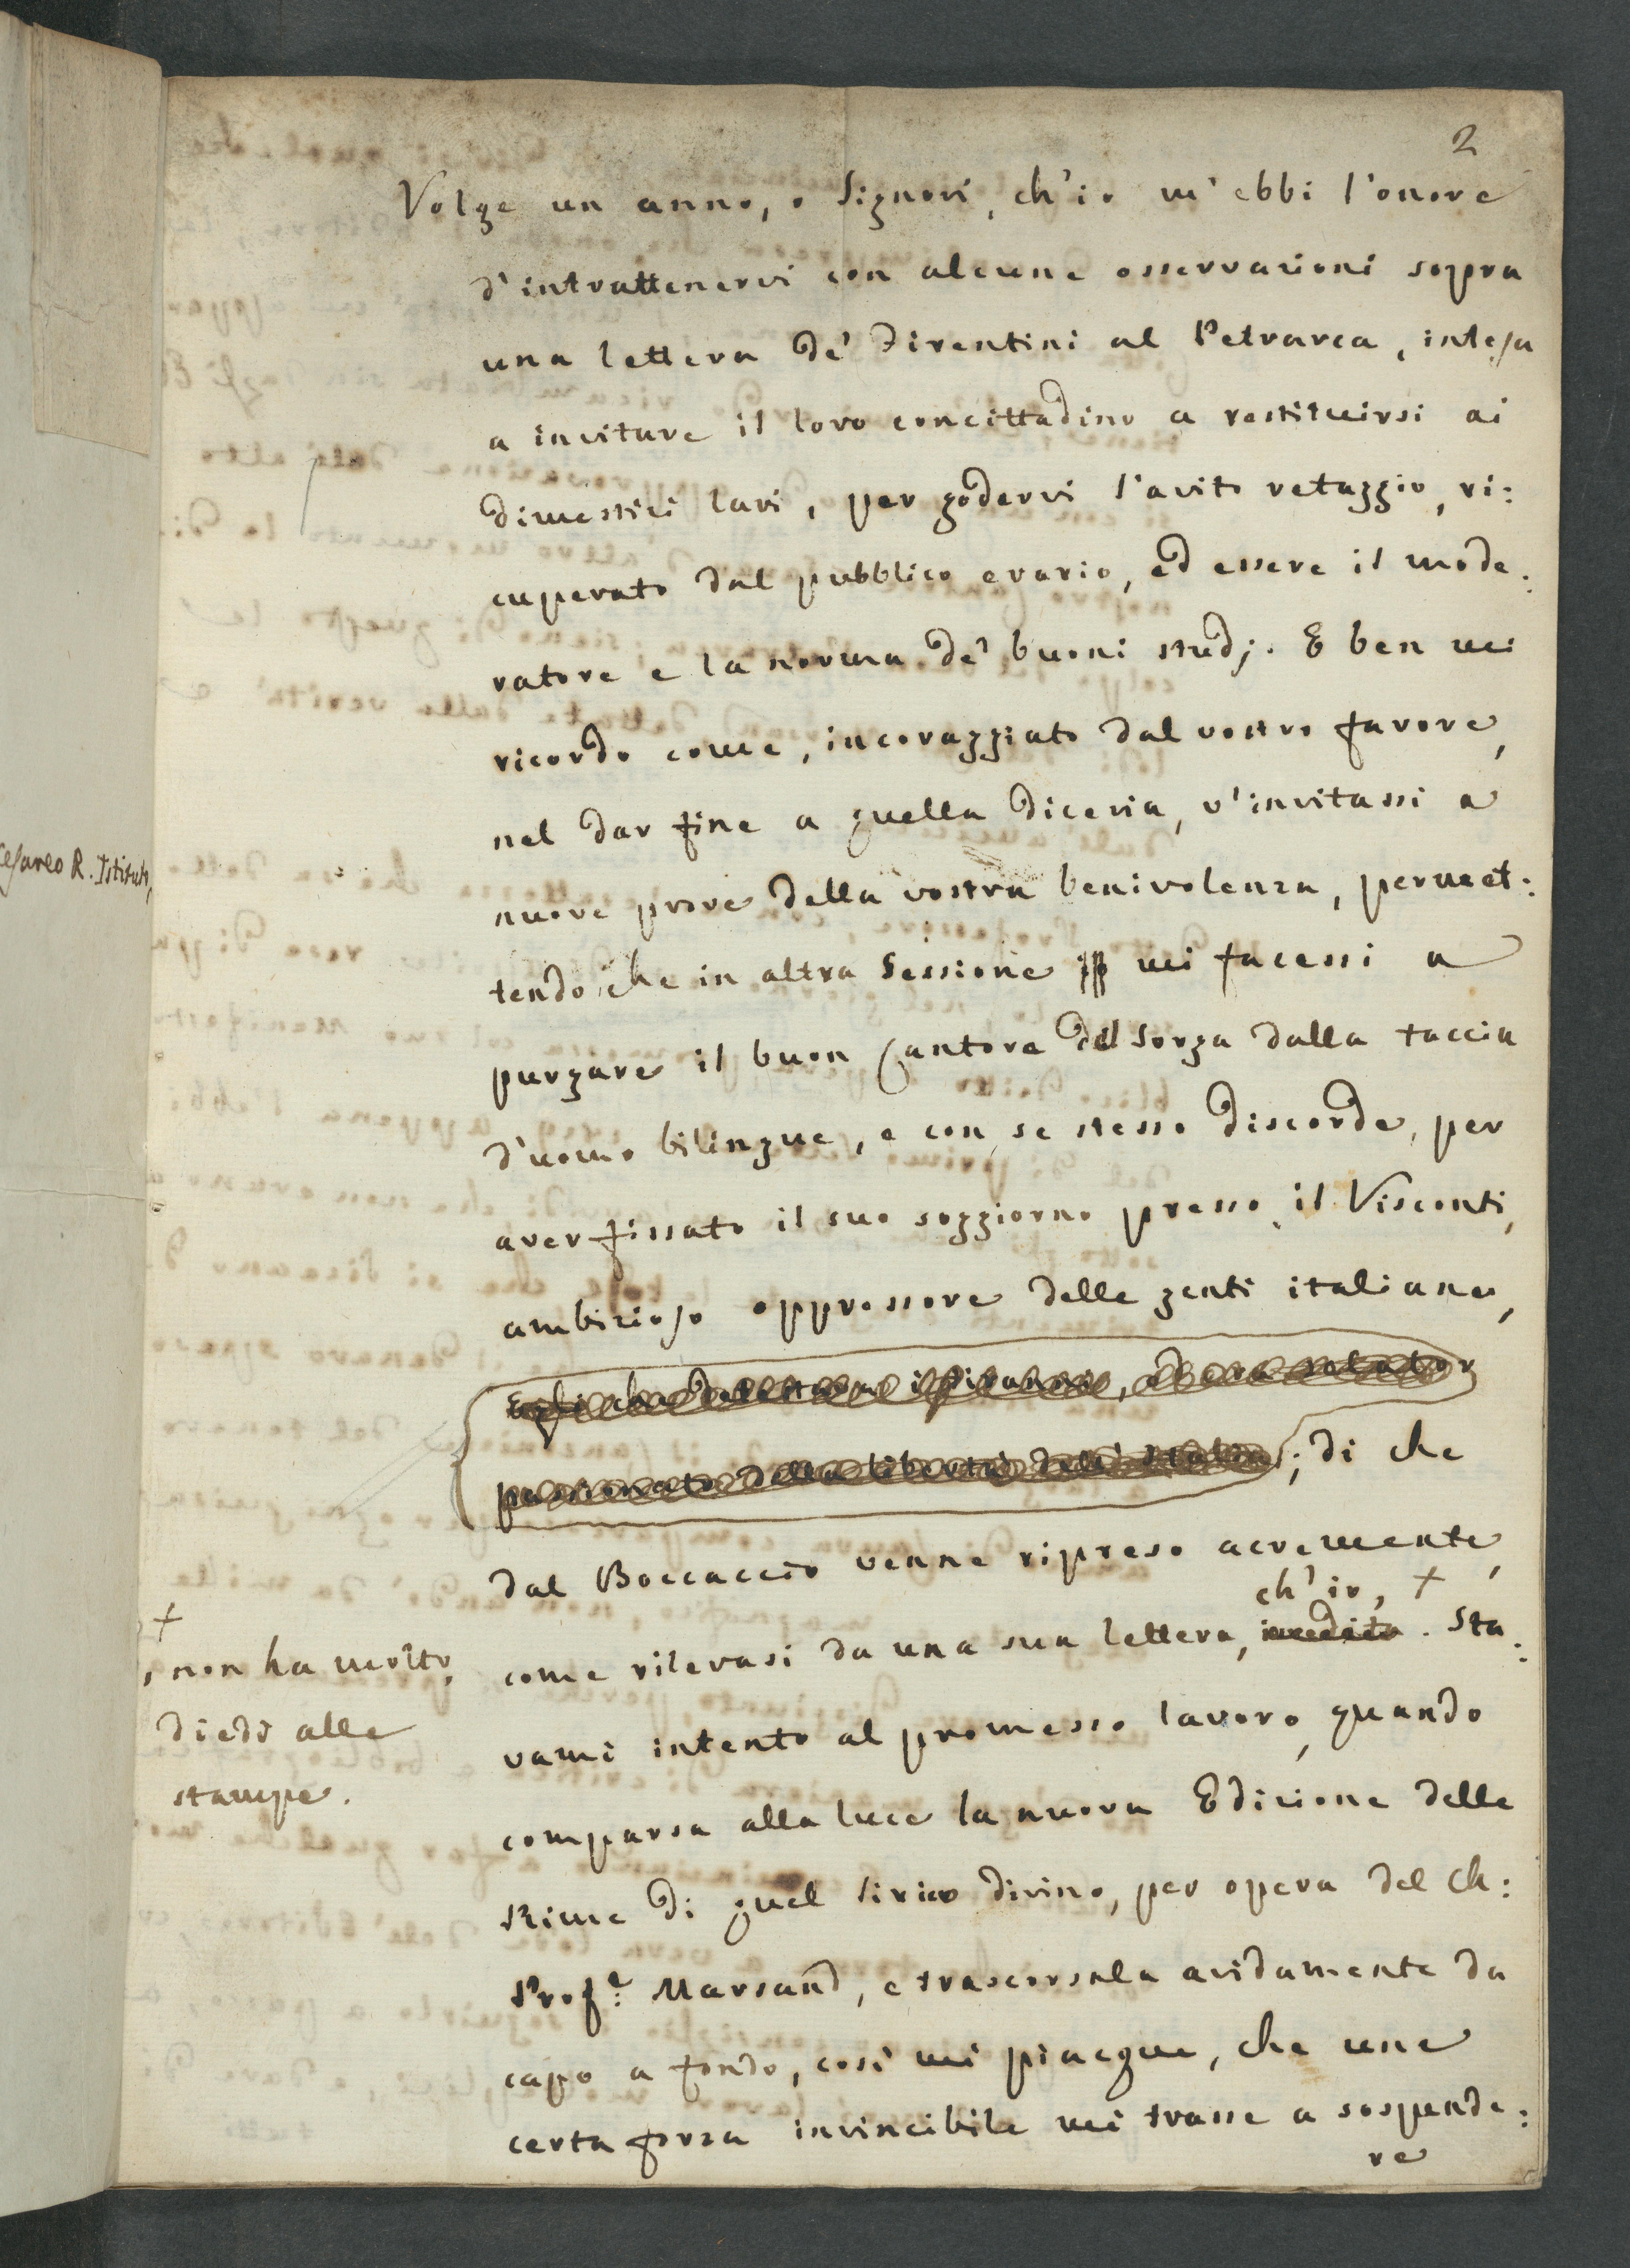 2
Volge un anno, o Signori, ch'io m'ebbi l'onore
d'intrattenervi con alcune osservazioni sopra
una lettera de' Firentini al Petrarca, intesa
a invitare il loro concittadino a restituirsi ai
dimestici lari, per godervi l'avito retaggio, ri:
cuperato dal pubblico erario, ed essere il mode:
ratore e la norma de' buoni studj. E ben mi
ricordo come, incoraggiato dal vostro favore,
nel dar fine a quella diceria, v'invitassi a
nuove prove della vostra benivolenza, permet:
tendo che in altra Sessione mi facessi a
purgare il buon Cantore del Sorga dalla taccia
d'uomo bilingue, e con se stesso discorde, per
aver fissato il suo soggiorno presso il Visconti,
ambizioso oppressore delle genti italiane,
Egli che detestava i Tiranni, ed era
passionato della libertà dell'Italia; di che
dal Boccaccio venne ripreso acremente,
ch'io, +
come rilevasi da una sua lettera, inedita. Sta:
vami intento al promesso lavoro, quando
comparsa alla luce la nuova Edizione delle
Rime di quel lirico divino, per opera del Ch:
Prof.e Marsand, e trascorsala avidamente da
capo a fondo, così mi piacque, che una
certa forza invincibile mi trasse a sospende:
re
+
, non ha molto,
diedi alle
stampe.
Cesareo R. Istituto,